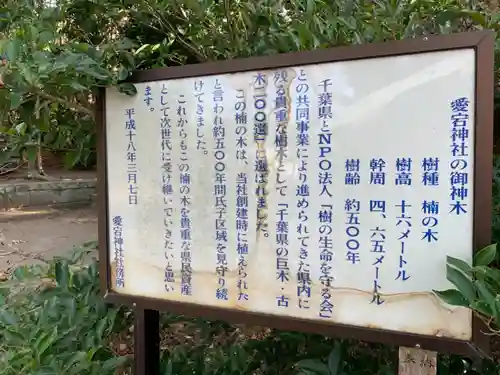 愛宕神社の御神木
樹種　楠の木
樹高　十六メートル
幹周　四、六五メートル
樹齢　約五〇〇年
千葉県とNPO法人「樹の生命を守る会」
との共同事業により進められてきた県内に
残る貴重な樹木として「千葉県の巨木・古
木二〇〇選」に選ばれました。
この楠の木は、当社創建時に植えられた
と言われ約五〇〇年間氏子区域を見守り続
けてきました。
これからもこの楠の木を貴重な県民資産
として次世代に受け継いでいきたいと思い
ます。
平成十八年三月七日
愛宕神社社務所
奉納